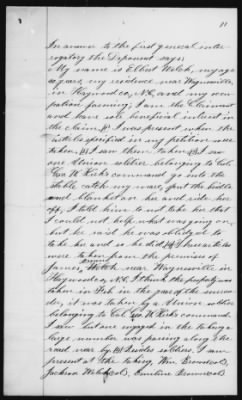 11
In answer to the first general inter-
rogatory the Deponent says:
My name is Elbert Welch, my age
years, my residence near Waynesville
in Haywood co, N.C. and my occu-
pation farming; I am the Claimant
and have sole beneficial interest in
the claim. I was present when the
articles specified in my petition were
taken. I saw them taken. I saw
one Union soldier belonging to Col.
Geo W. Kirks command go into the
stable catch my mare, put the bridle
and blanket on her and ride her
off, I told him to not take her that I
could not help what was going on,
but he said he was obliged to
take her and so he did. These articles
were taken from the premises of
James Welch near Waynesville in
Haywood co, N.C. I think the property was
taken in Feb in the year of the surren-
der, it was taken by a Union soldier
belonging to Col Geo W. Kirks command.
I saw but one engaged in the taking a
large number was passing along the
road near by. Besides soldiers, I am
present at the taking, Wm
Jackson Welch Emeline